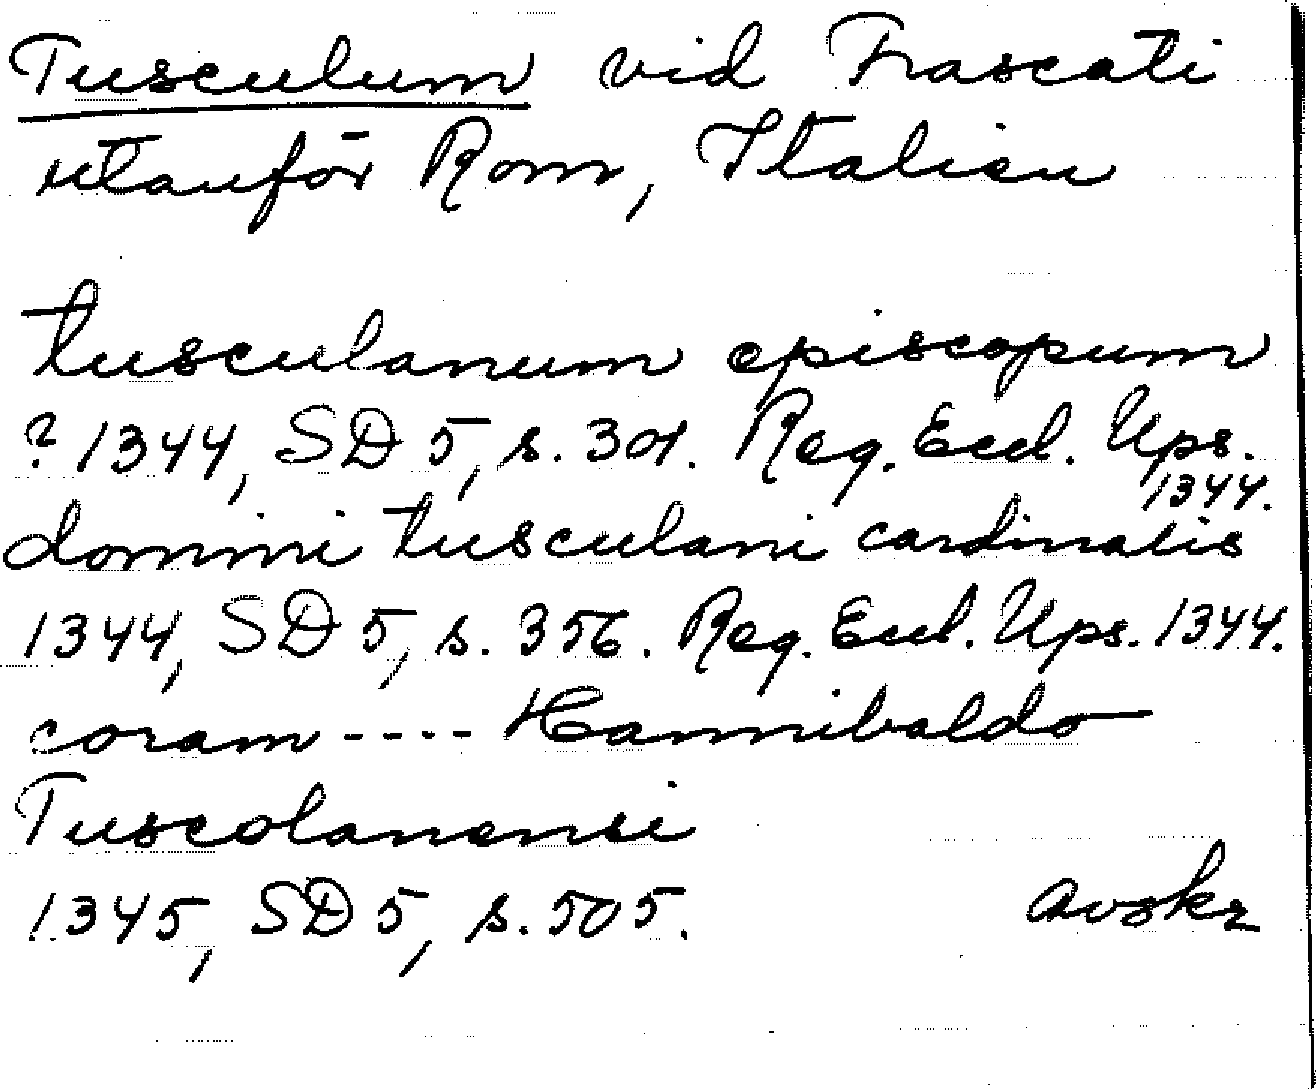 Tusculum vid Frascati
utanför Rom, Italien
tusculanum episcopum
? 1344, SD 5, s. 301. Reg. Eccl. Ups.
1344.
domini tusculani cardinalis
1344, SD 5, s. 356. Reg. Eccl. Ups. 1344.
coram ---- Hannibaldo
Tuscolanensi
1345, SD 5, s. 505. avskr